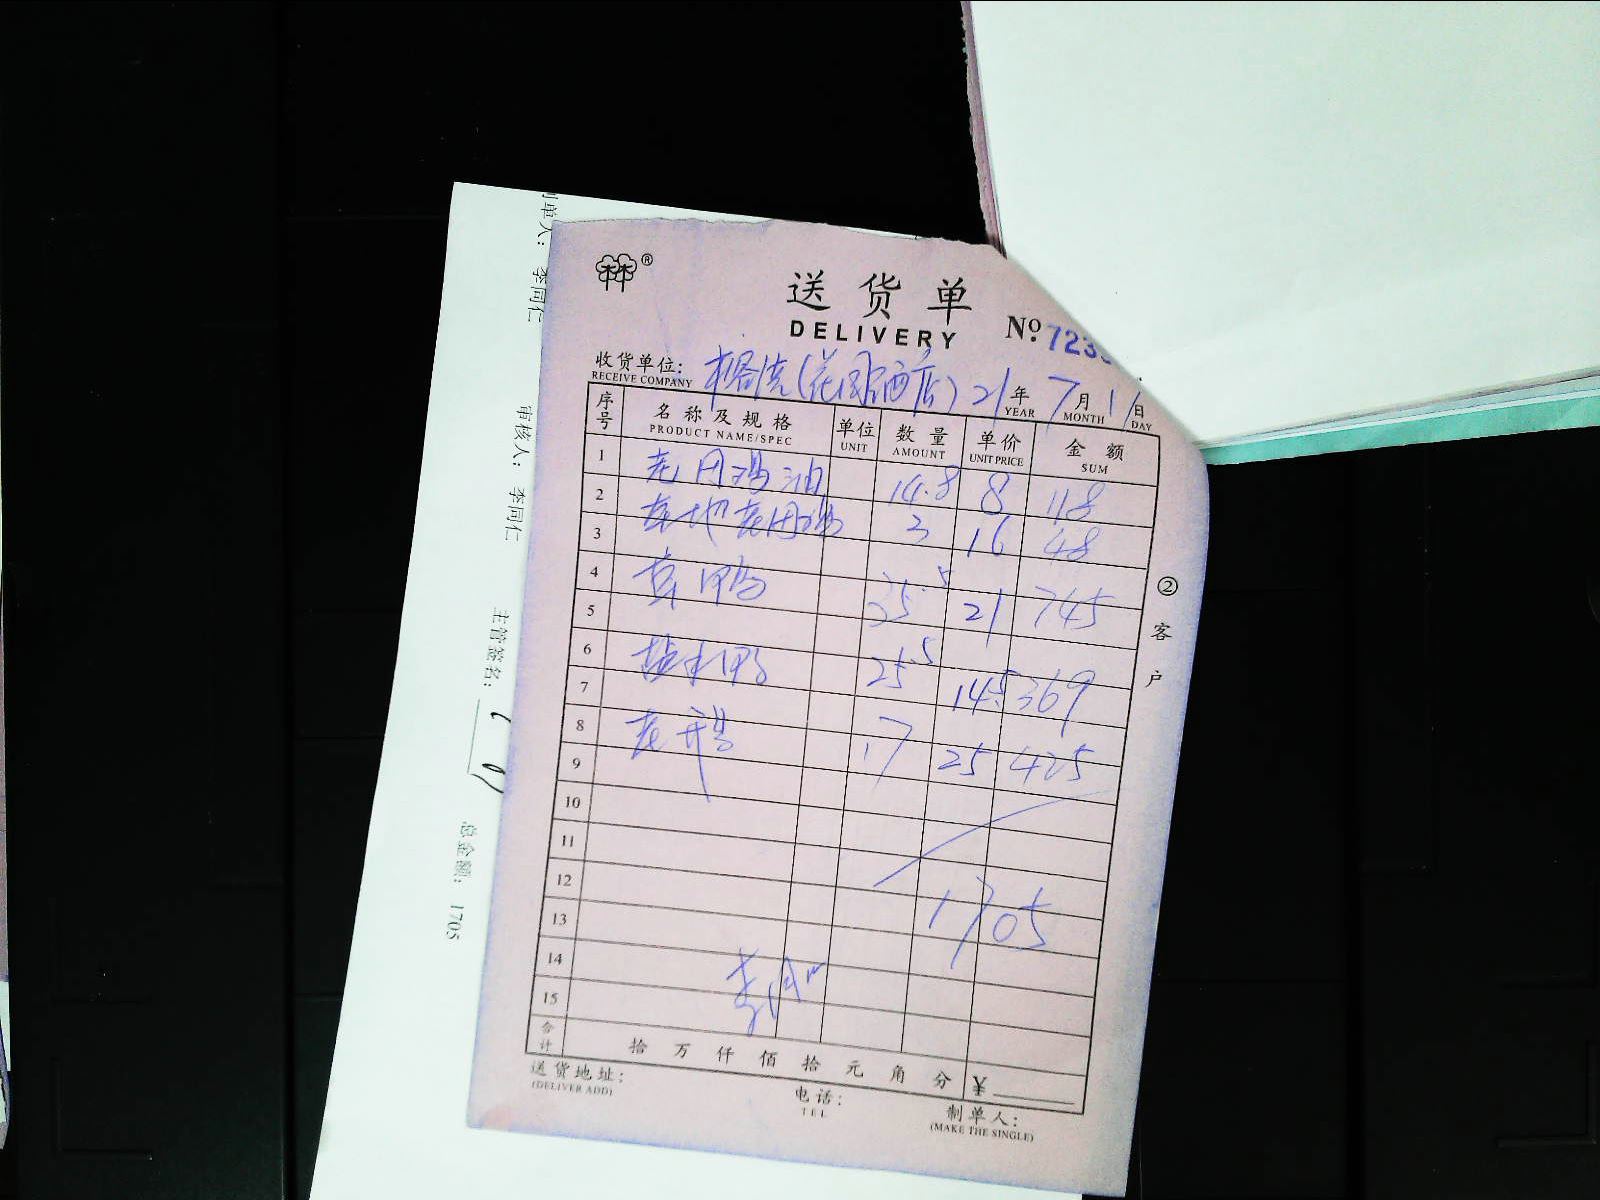 ®
送货单
DELIVERY
No. 723
收货单位: (花园酒店) 21年 7月 1日
RECEIVE COMPANY YEAR MONTH DAY
序号 名称及规格 单位 数量 单价 金额
PRODUCT NAME/SPEC UNIT AMOUNT UNIT PRICE SUM
1 14.8 8 118
2 3 16 48
3
4 35.5 21 745
5
6 盐水鸭 25.5 14.5 369
7
8 17 25 425
9
10
11
12 1705
13
14
15
合计 拾 万 仟 佰 拾 元 角 分 ¥
送货地址:
(DELIVER ADD)
电话:
TEL
制单人:
(MAKE THE SINGLE)
②客户
制单人: 李同仁
审核人: 李同仁
主管签名:
总金额: 1705